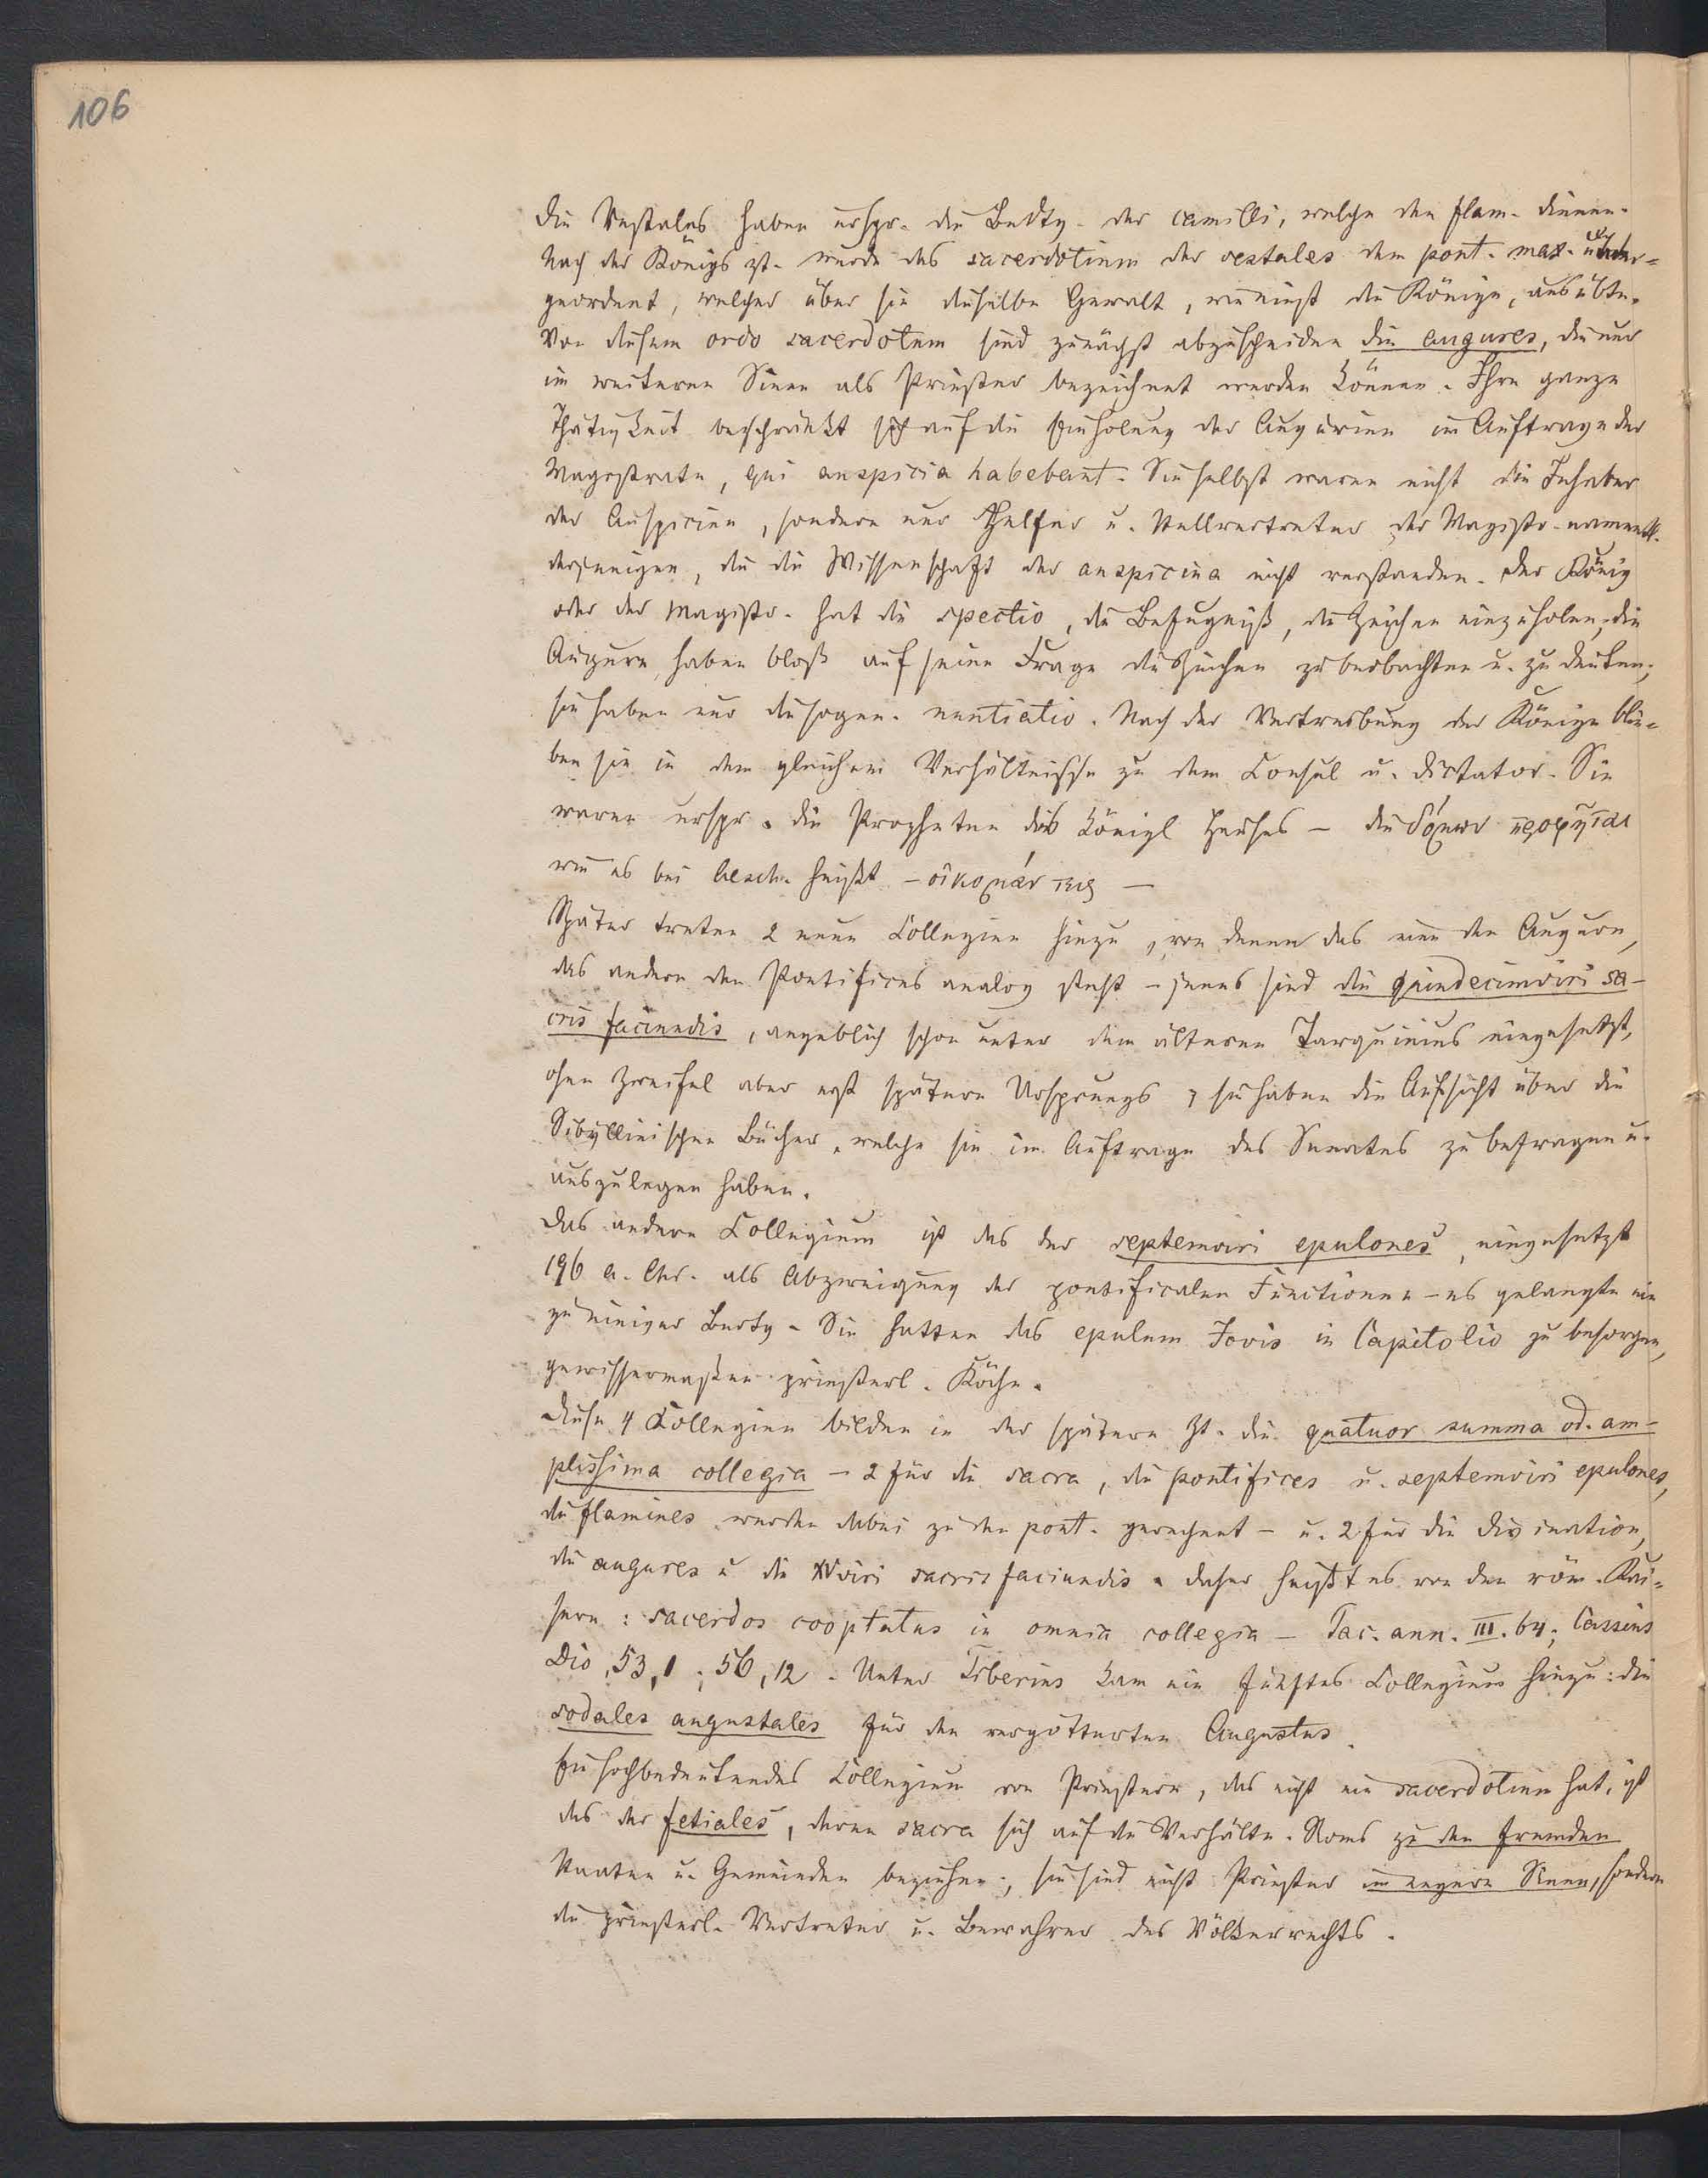 106
Die Vestales haben urspr. die Bedtg. der camilli, welche den flam. dienen.
Nach der Königszt. wurde das sacerdotium der vestales dem pont. max. unter=
geordnet, welcher über sie dieselbe Gewalt, wie einst die Könige, ausübte.
Von diesem ordo sacerdotum sind zunächst abzuscheiden die augures, die nur
im weiteren Sinne als Priester bezeichnet werden können. Ihre ganze
Thätigkeit beschränkt sich auf die Einholung der Augurien im Auftrage der
Magistrate, qui auspicia habebant. Sie selbst waren nicht die Inhaber
der Auspicien, sondern nur Helfer u. Stellvertreter der Magistr. namentl.
derjenigen, die die Wissenschaft der auspicina nicht verstanden. Der König
oder der Magistr. hat die spectio, die Befugniß, die Zeichen einzuholen; die
Augurn haben bloß auf seine Frage die Zeichen zu beobachten u. zu deuten;
sie haben nur die sogen. nuntiatio. Nach der Vertreibung der Könige blie=
ben sie in dem gleichem Verhältnisse zu dem Consul u. Dictator. Sie
waren urspr. die Propheten des königl Hauses – die δόμων προφῆται
wie es bei Aesch. heißt – οἰκομάντεις –
Später treten 2 neue Collegien hinzu, von denen das eine den Augurn,
das andere den Pontifices analog steht – jenes sind die quindecimviri sa-
cris faciundis, angeblich schon unter dem älteren Tarquinius eingesetzt,
ohne Zweifel aber erst spätern Ursprungs; sie haben die Aufsicht über die
Sibyllinischen Bücher, welche sie im Auftrage des Senates zu befragen u.
auszulegen haben.
Das andere Collegium ist das der septemviri epulones, eingesetzt
196 a. Chr. als Abzweigung der pontificalen Functionen – es gelangte nie
zu einiger Bedtg. Sie hatten das epulum Jovis in Capitolio zu besorgen,
gewissermaßen priesterl. Köche.
Diese 4 Collegien bilden in der spätern Zt. die quatuor summa od. am-
plissima collegia – 2 für die sacra, die pontifices u. septemviri epulones,
die flamines werden dabei zu den pont. gerechnet – u. 2 für die Divination,
die augures u die XVviri sacris faciundis. Daher heißt es von den röm. Kai=
sern: sacerdos cooptatus in omnia collegia – Tac. ann. III. 64; Cassius
Dio, 53,1; 56,12. Unter Tiberius kam ein fünftes Collegium hinzu: die
sodales augustales für den vergötterten Augustus.
Ein hochbedeutendes Collegium von Priestern, das nicht ein sacerdotium hat, ist
das der fetiales, deren sacra sich auf die Verhältn. Roms zu den fremden
Staaten u. Gemeinden beziehen; sie sind nicht Priester im engern Sinne, sondern
die priesterl. Vertreter u. Bewahrer des Völkerrechts.